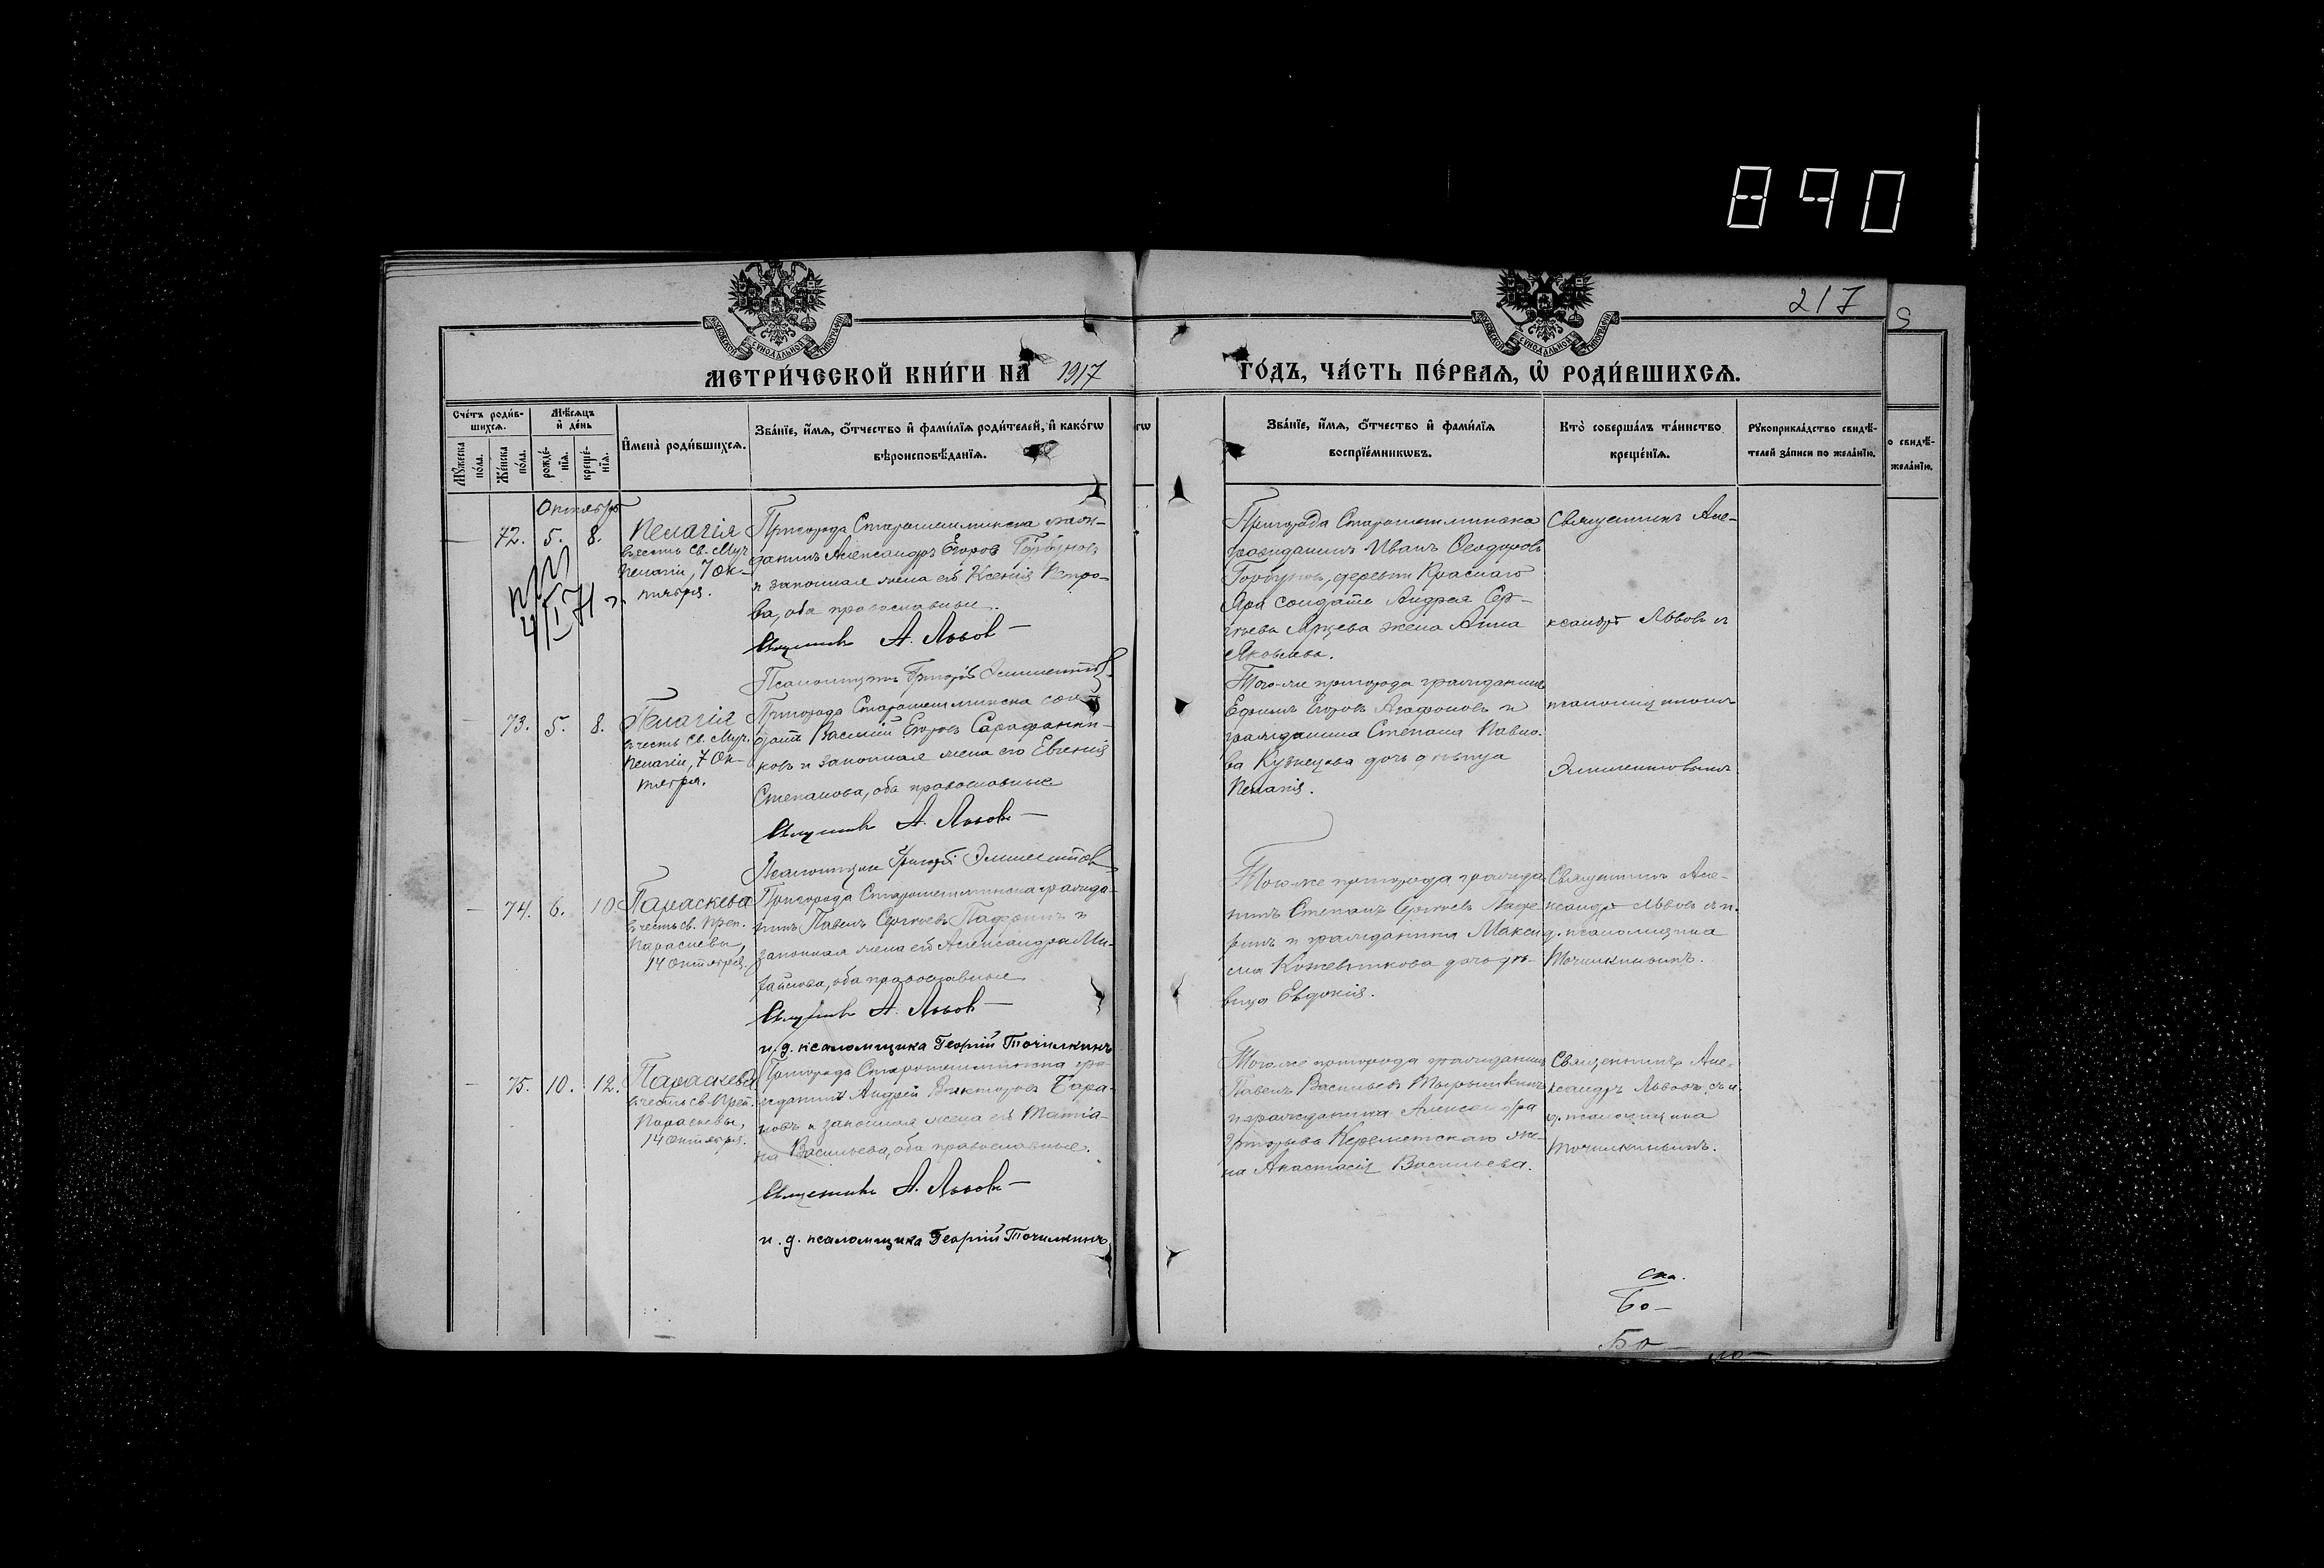 890
217
МЕТРИ́ЧЕСКОЙ КНИ́ГИ НА 1917
ГО́ДЪ, ЧА́СТЬ ПЕ́РВАЯ, Ѡ҆ РОДИ́ВШИХСЯ.
Сче́тъ роди́в-
шихся.
Мѣ́сяцъ
и҆ де́нь
Мꙋ́жеска
по́ла.
Же́нска
по́ла.
рожде́-
нїя.
креще́-
нїя.
И҆мена̀ роди́вшихся.
Зва́нїе, и҆́мя, ѻ҆́тчество и҆ фами́лїя роди́телей, и҆ како́гѡ
вѣроисповѣ́данїя.
гѡ
Зва́нїе, и҆́мя, ѻ҆́тчество и҆ фами́лїя
воспрїе́мникѡвъ.
Кто̀ соверша́лъ та́инство
креще́нїя.
Рꙋкоприкла́дство свидѣ́-
телей за́писи по жела́нїю.
о свидѣ́-
жела́нїю.
Октябрь
72. 5. 8. Пелагія
въ честь Св. Муч.
Пелагіи, 7 Ок-
тября.
Пригорода Старошешминска граж-
данинъ Александръ Егоровъ Горбуновъ
и законная жена его Ксенія Петро-
ва, оба православные.
Священникъ А. Львовъ
Псаломщикъ Григорій
Пригорода Старошешминска
гражданинъ Иванъ Ѳеодоровъ
Горбуновъ, деревни Краснаго
Яра солдата Андрея Сер-
гѣева жена Анна
Яковлева.
Священникъ Але-
ксандръ Львовъ съ
псаломщикомъ
73. 5. 8. Пелагія
въ честь Св. Муч.
Пелагіи, 7 Ок-
тября.
Пригорода Старошешминска сол-
датъ Василій Егоровъ Сарафанни-
ковъ и законная жена его Евгенія
Степанова, оба православные
Священникъ А. Львовъ
Псаломщикъ Григорій
Того-же пригорода гражданинъ
Ефимъ Егоровъ Агафоновъ и
гражданина Степана Павло-
ва Кузнецова дочь дѣвица
Пелагія.
74. 6. 10. Параскева
въ честь св. Преп.
Параскевы,
14 Октября.
Пригорода Старошешминска гражда-
нинъ Павелъ Сергѣевъ
законная жена его Александра Ми-
хайлова, оба православные
Священникъ А. Львовъ
и. д. псаломщика Георгій Точилкинъ
Того-же пригорода гражда-
нинъ Степанъ Сергѣевъ
и гражданина Макси-
ма Кожевникова дочь дѣ-
вица Евдокія.
Священникъ Але-
ксандръ Львовъ съ и.
д. псаломщика
Точилкинымъ.
75. 10. 12. Параскева
въ честь св. Преп.
Параскевы,
14 Октября.
Пригорода Старошешминска гра-
жданинъ Андрей Викторовъ Бара-
новъ и законная жена его Татіа-
на Васильева, оба православные.
Священникъ А. Львовъ
и. д. псаломщика Георгій Точилкинъ
Того-же пригорода гражданинъ
Павелъ Васильевъ
и гражданина Александра
Григорьева Кереметскаго же-
на Анастасія Васильева.
Священникъ Але-
ксандръ Львовъ съ и.
д. псаломщика
Точилкинымъ.